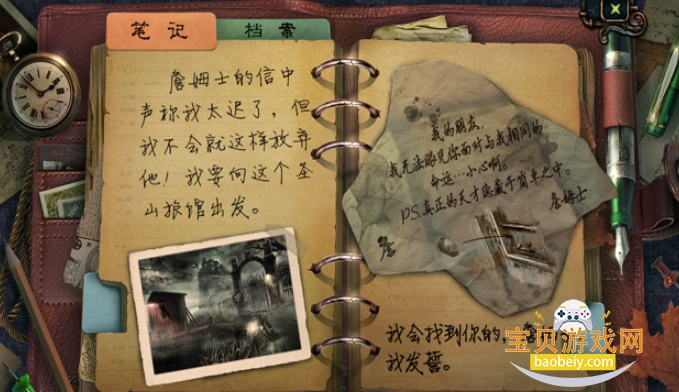 笔记
档案
詹姆士的信中
声称我太迟了，但
我不会就这样放弃
他！我要向这个圣
山旅馆出发。
我的朋友，
我无法眼见你面对与我相同的
命运…小心啊。
P.S.真正的天才隐藏于简单之中。
詹姆士
我会找到你的，
我发誓。
宝贝游戏网
baobeiy.com